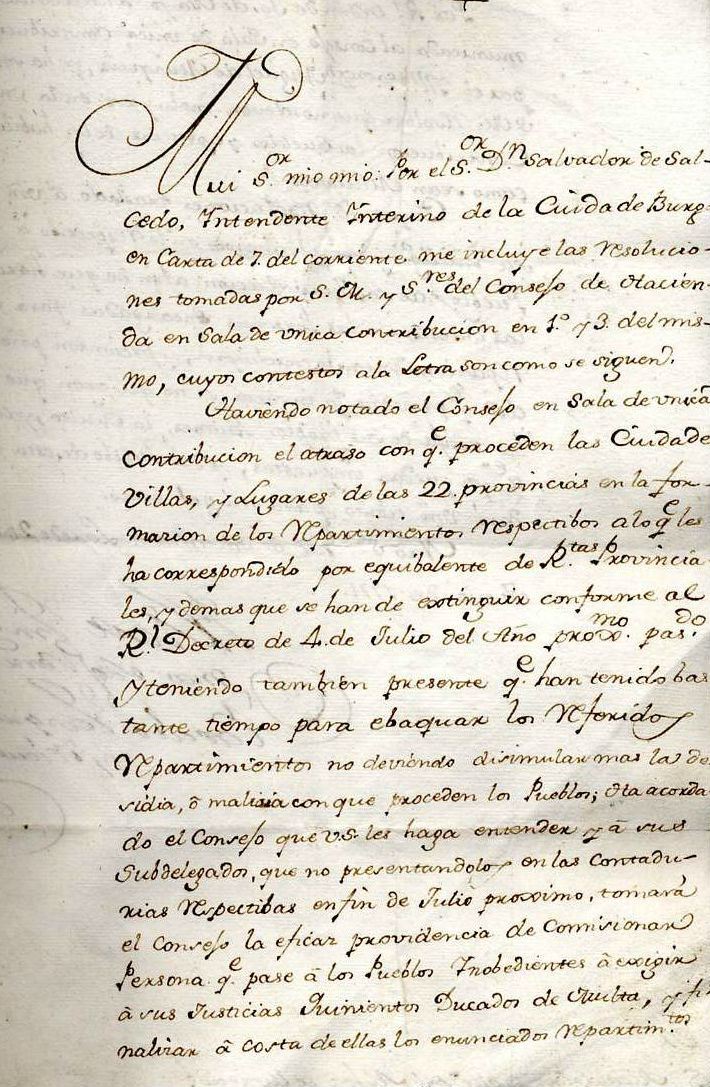 Mui S.or mio mio. Por el S.or D.n Salvador de Sal-
cedo, Intendente Interino de la Ciuda de Burg
en Carta de 7. del corriente me incluye las resolucio-
nes tomadas por S. M. y S.res del Consejo de Hacien-
da en Sala de vnica contribucion en 1.º y 3. del mis-
mo, cuyos contestos a la Letra son como se siguen.
Haviendo notado el Consejo en Sala de vnica
contribucion el atraso con q.e proceden las Ciudade
Villas, y Lugares de las 22. provincias en la for-
marion de los Repartimientos respectibos a lo q.e les
ha correspondido por equibalente de R.tas Provincia-
les, y demas que se han de extinguir conforme al
R.l Decreto de 4. de Julio del Año proxo.mo pas.do
y teniendo tambien presente q.e han tenido bas
tante tiempo para ebaquar los referidos
Repartimientos no deviendo disimular mas la de
sidia, ô malizia con que proceden los Pueblos; Ha acorda
do el Consejo que V.S. les haga entender y â sus
Subdelegados, que no presentandolos en las Contadu-
rias respectibas en fin de Julio proximo, tomará
el Consejo la eficaz providencia de Comisionar
Persona q.e pase â los Pueblos Inobedientes â exigir
â sus Justicias Quinientos Ducados de Multa, y fi
nalizar â costa de ellas los enunciados Repartim.tos